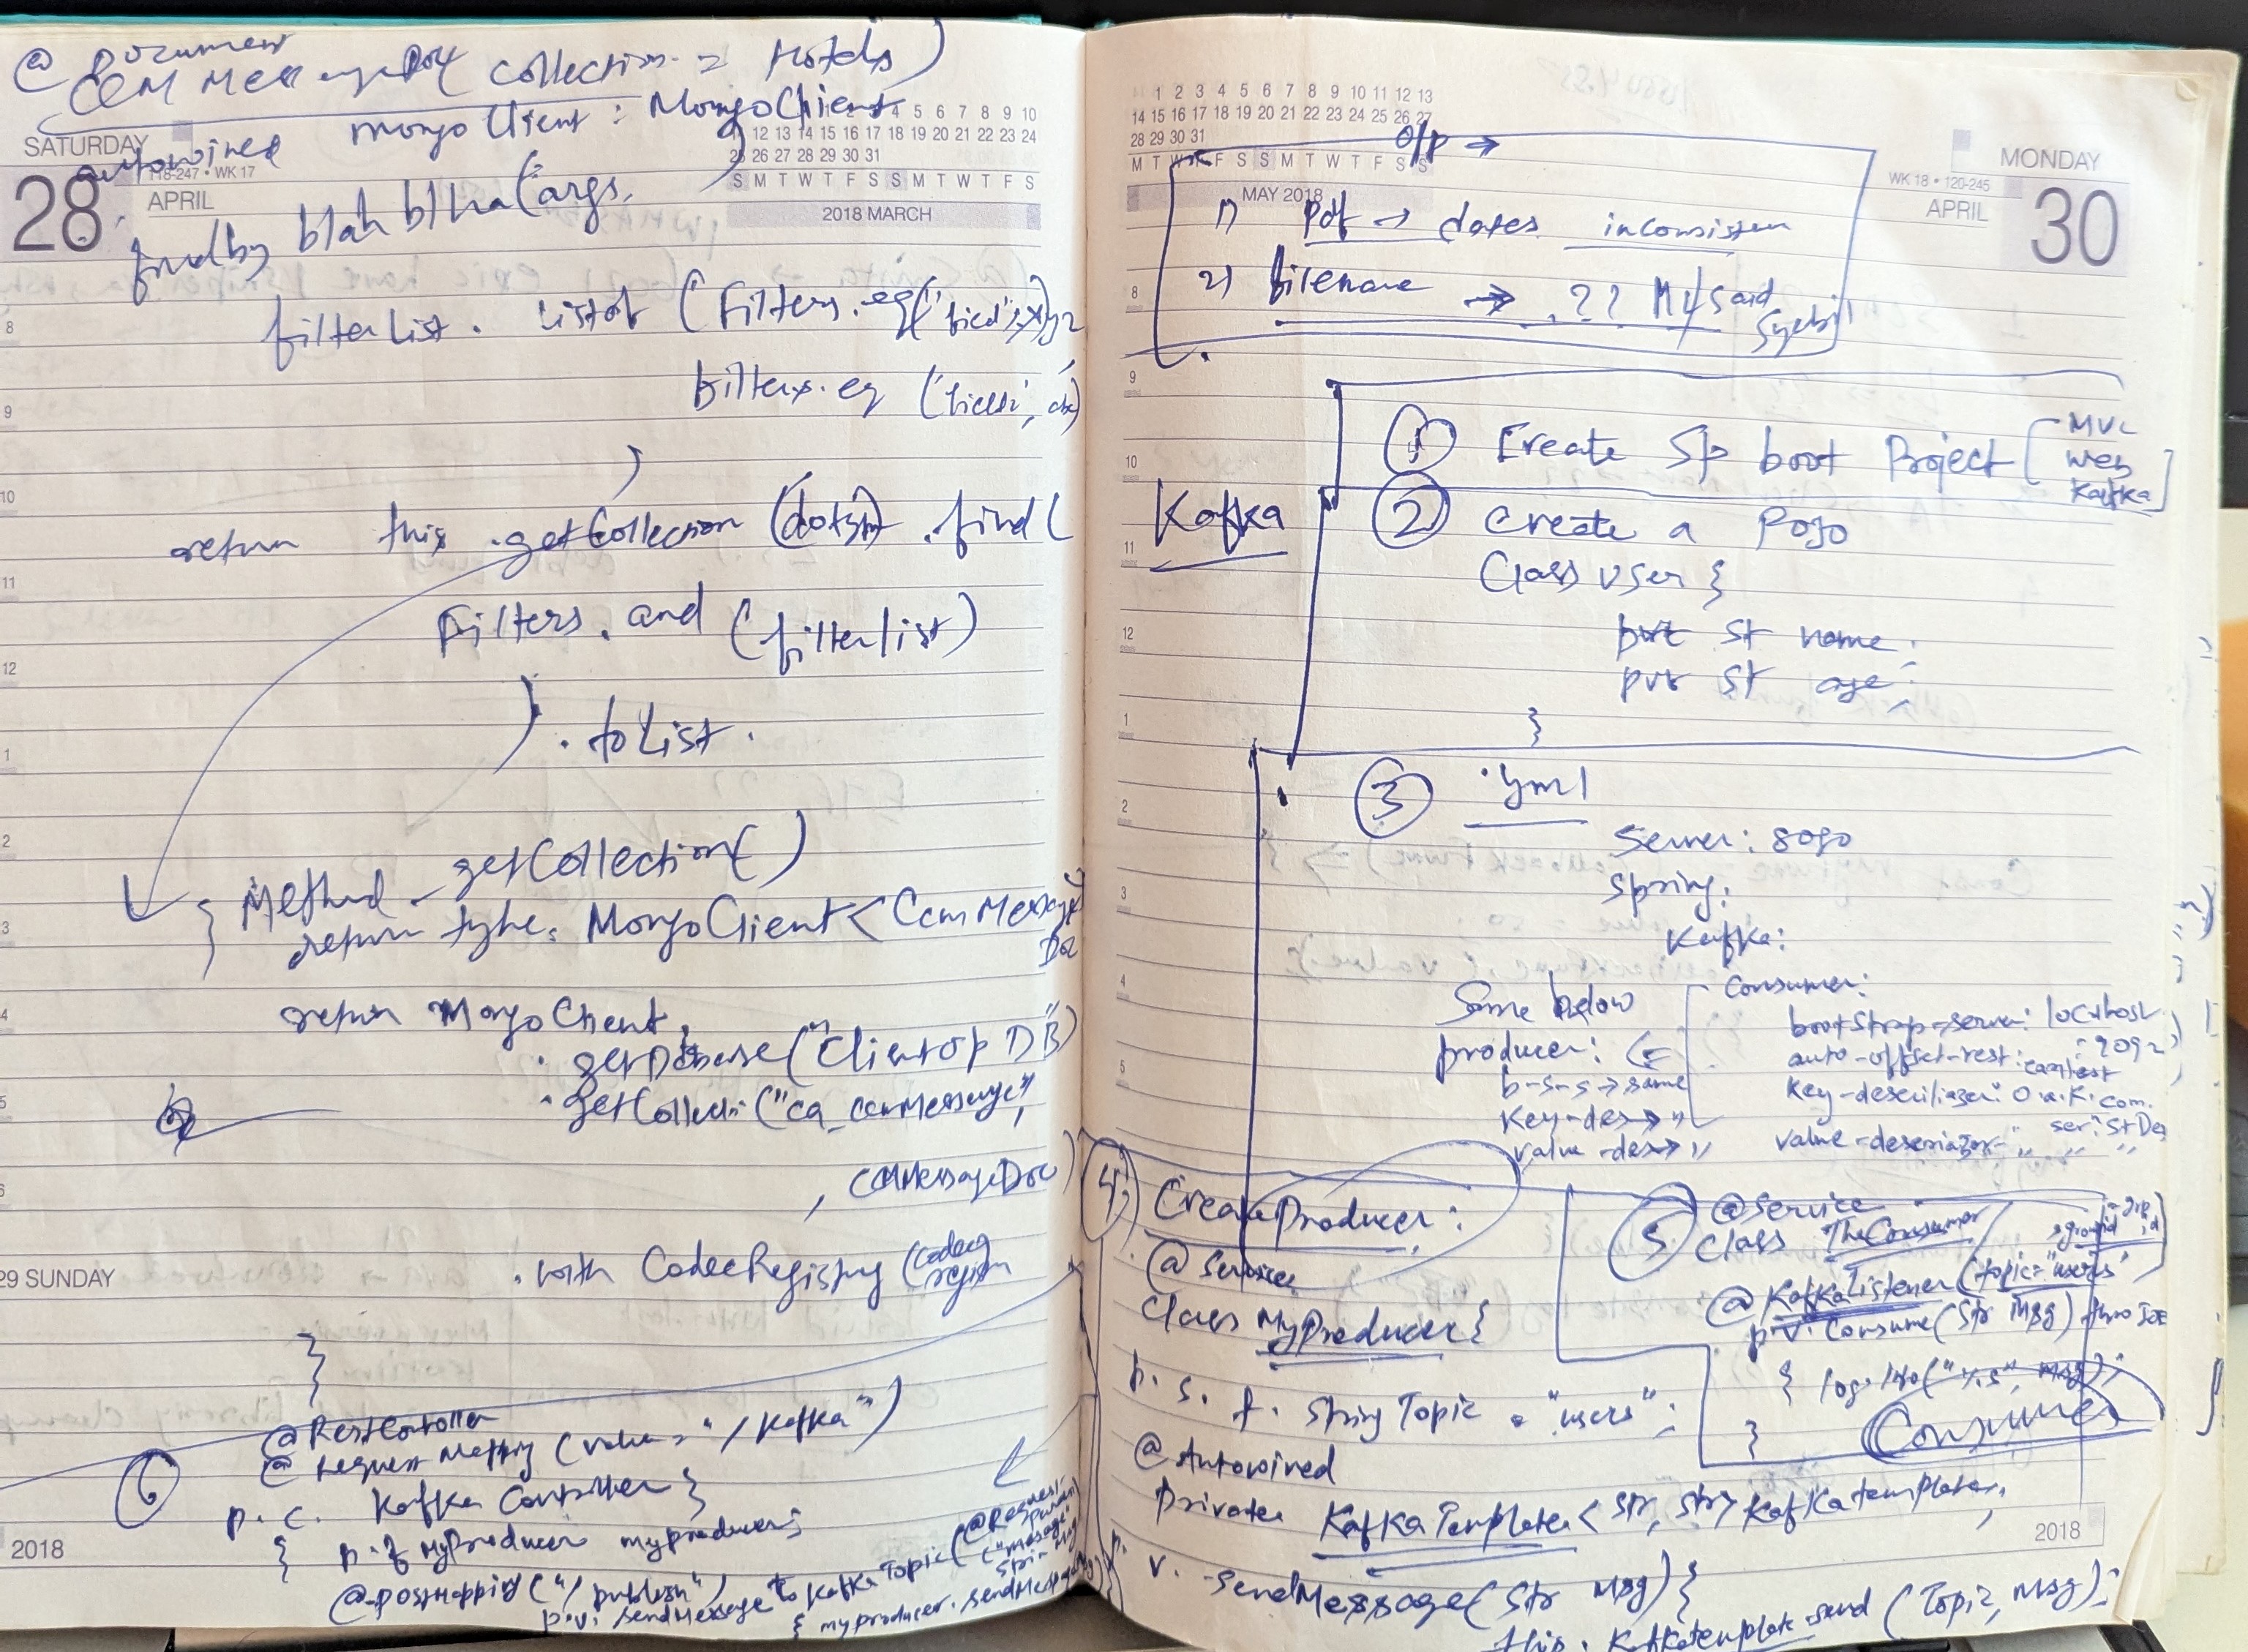 @ Document
CCM MessageDoc (collection = Hotels)
autowired mongoClient : MongoClient
1 2 3 4 5 6 7 8 9 10
12 13 14 15 16 17 18 19 20 21 22 23 24
25 26 27 28 29 30 31
S M T W T F S S M T W T F S
2018 MARCH
SATURDAY
28
118-247 • WK 17
APRIL
findby blah blha (args.
)
filterList . listof (Filters.eq('field', x),
Filters.eq ('field2', abc)
)
return this .getCollection () .find (
Filters. and (filterlist)
) . toList .
{ Method - getCollection()
return type: MongoClient < CcmMessage
Doc
return MongoClient.
. getDtbase ("ClientopDB")
. getCollecti ("ca_ccmMessage",
, CCMMessageDoc)
. with CodecRegistry (codec
region
}
29 SUNDAY
6
@RestController
@ Request Mapping (value = "/kafka")
p. c. Kafka Controller {
{ p. f MyProducer myproducer;
@-postMapping ("/publish")
p.v. sendMessage to KafkaTopic (@Request
Param
("message"
Stri- Msg)
{ myproducer. sendMessage
2018
8
9
10
11
12
1
2
3
4
5
6
1 2 3 4 5 6 7 8 9 10 11 12 13
14 15 16 17 18 19 20 21 22 23 24 25 26 27
28 29 30 31
M T W T F S S M T W T F S S
MAY 2018
MONDAY
WK 18 • 120-245
APRIL
30
o/p →
1) Pdf → dates inconsisten
2) filename → . ? ? said
8
9
10
11
12
1
2
3
4
5
Kafka
1 Create Sp boot Project [ MVC
Web
Kafka ]
2 Create a Pojo
Class User {
pvt St name;
pvt St age;
}
3 .yml
Server: 8080
Spring:
Kafka:
Consumer:
bootstrap-server: localhost
: 9092
auto-offset-rest: earliest
key-deserilizer: O.a.K.com.
ser. StDes
value-deserializer- " " "
Same below
producer:
b-s-s → same
key-des → "
value-des → "
4) Create Producer:
@ Service
Class MyProducer {
p. s. f. String Topic = "users";
@ Autowired
Private KafkaTemplate < Str, Str> Kafkatemplate;
p. v. sendMessage (Str Msg) {
this. Kafkatemplate.send (Topic, Msg);
5 @Service
Class TheConsumer
@KafkaListener (topic="users"
, groupid = grp
id)
p.v. Consume (Str Msg) thro IOE
{ log.info ("%s", Msg);
}
Consumer
2018